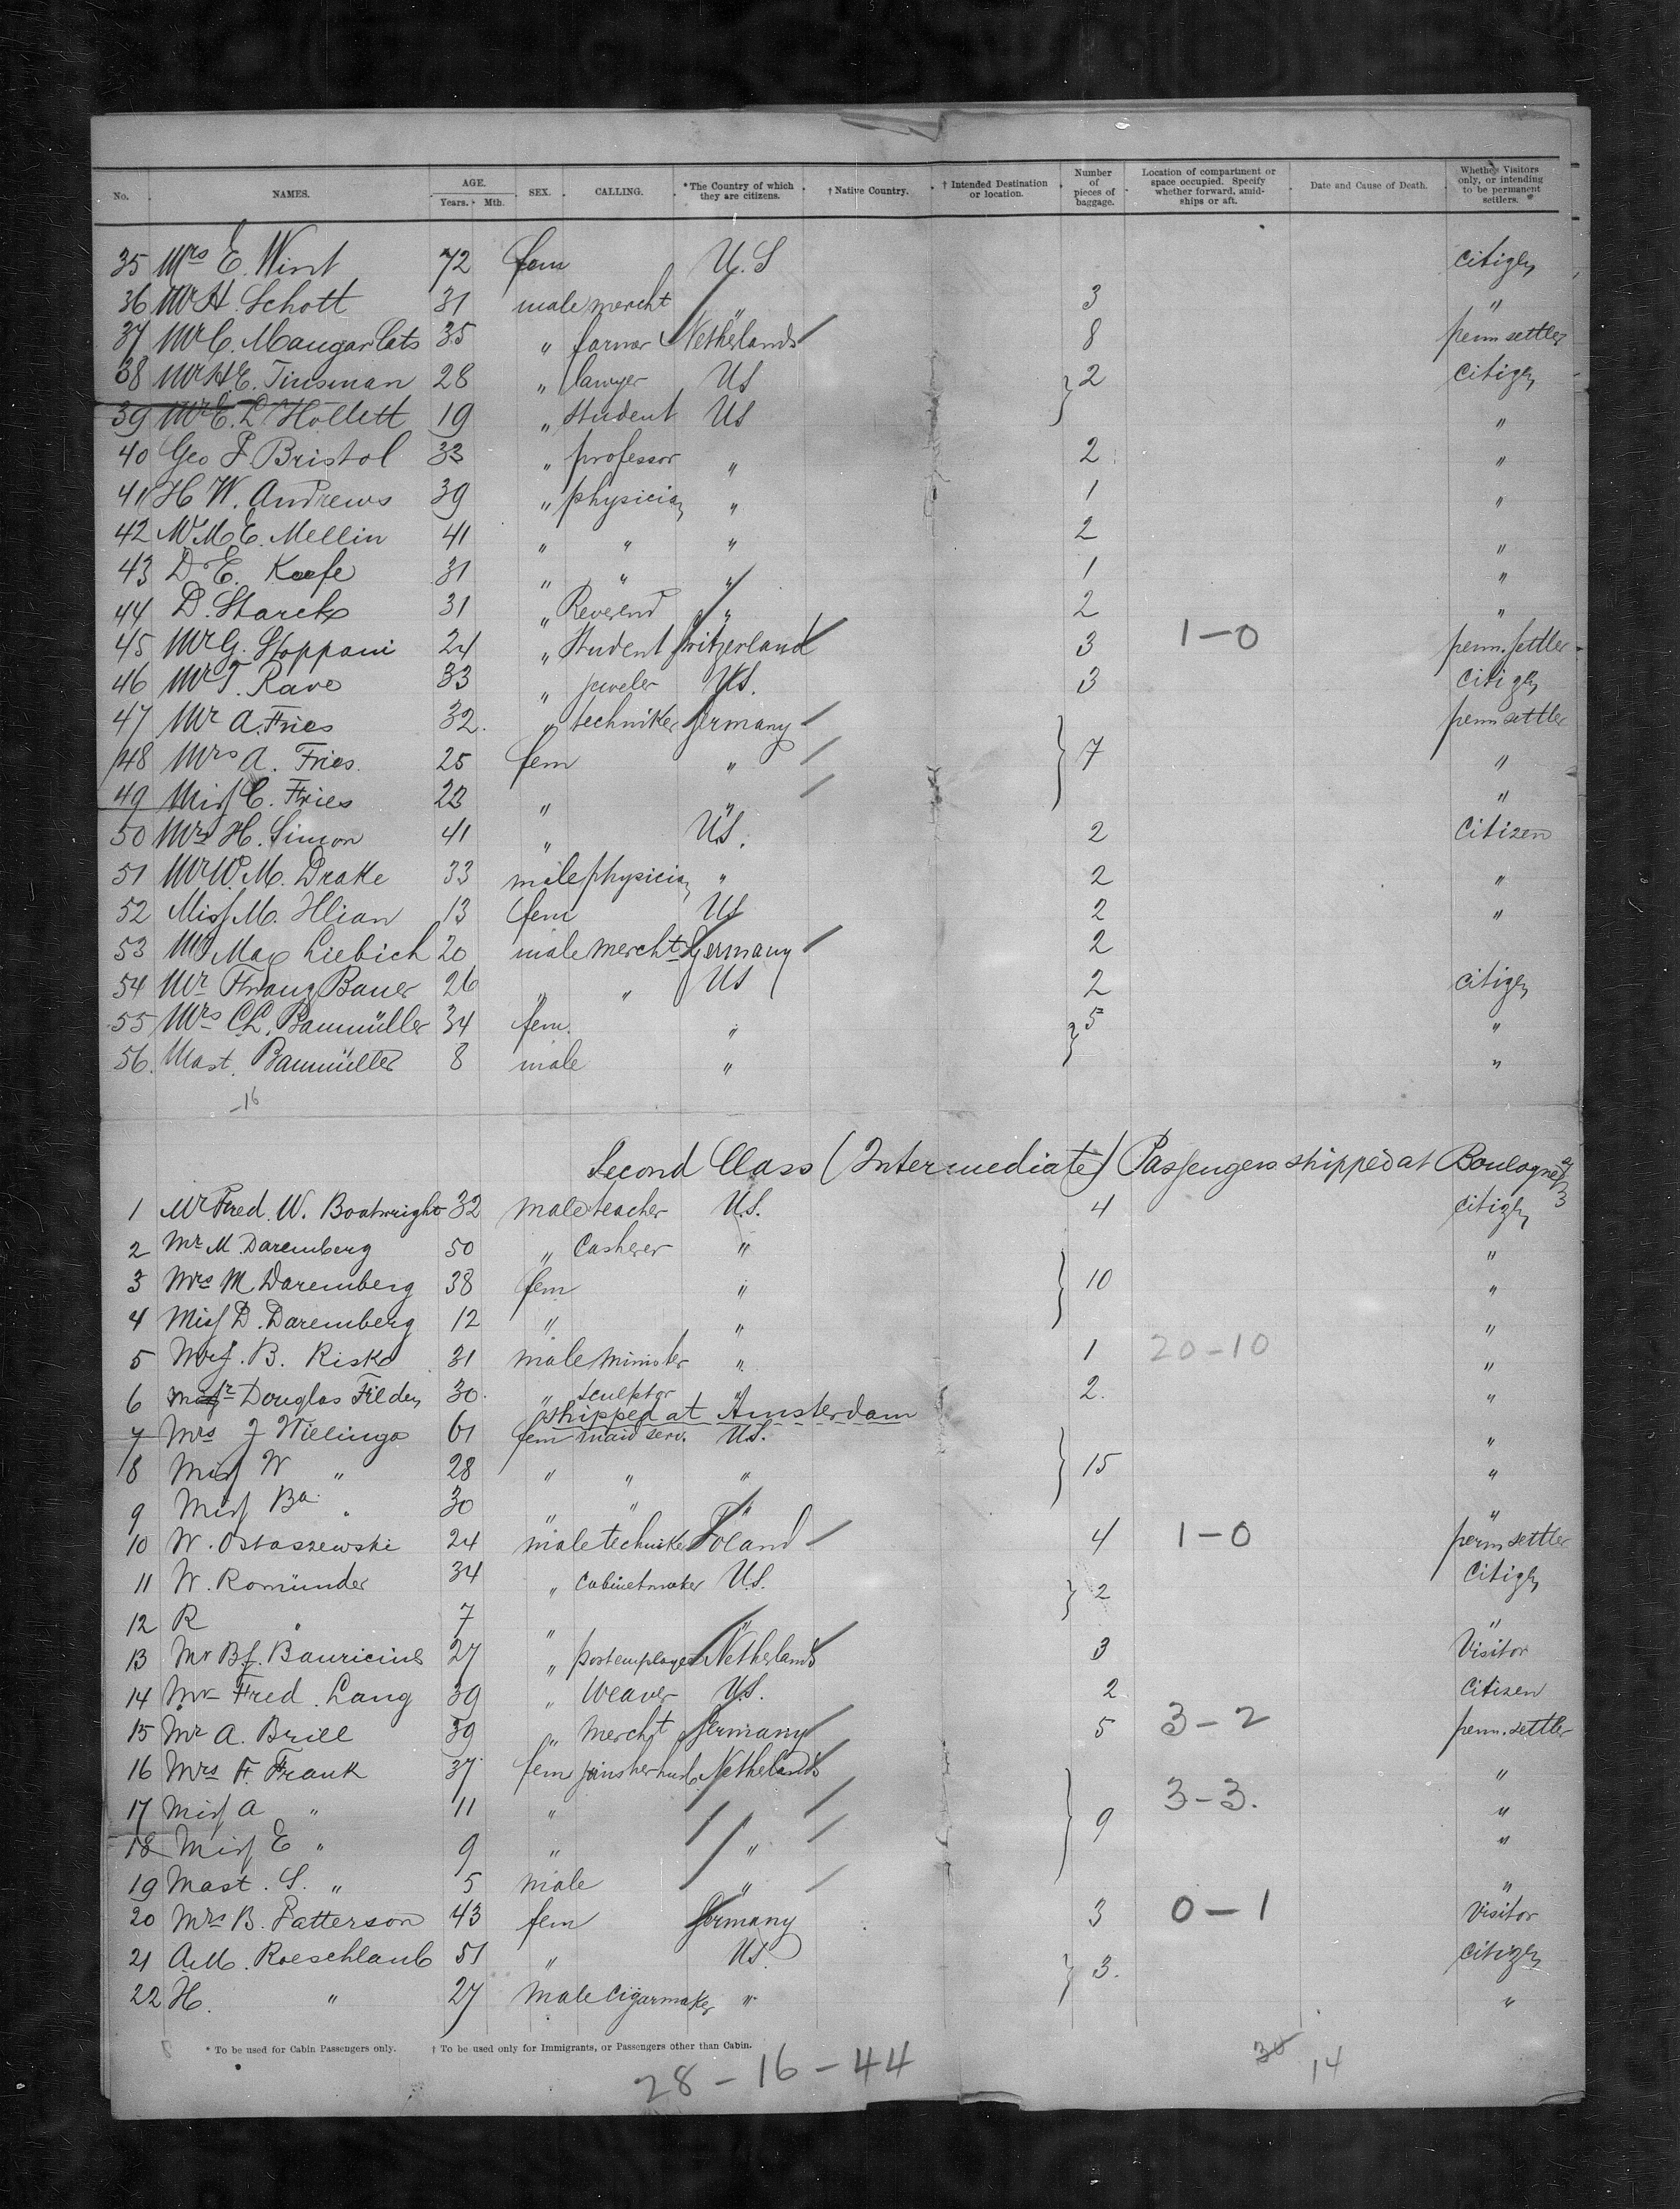 No. NAMES. AGE. Years. Mth. SEX. CALLING. *The Country of which they are citizens. †Native Country. †Intended Destination or location. Number of pieces of baggage. Location of compartment or space occupied. Specify whether forward, amidships or aft. Date and Cause of Death. Whether Visitors only, or intending to be permanent settlers.
35 Mrs E. Wint 72 fem U.S citizen
36 Mr H. Schott 31 male mercht " 3 "
37 Mr C. Maugar Cats 35 " farmer Netherlands 8 perm settler
38 Mr H.E. Tinsman 28 " lawyer US 2 citizen
39 Mr E. L. Hollett 19 " student US "
40 Geo F. Bristol 33 " professor " 2 "
41 H W. Andrews 39 " physician " 1 "
42 M. E. Mellin 41 " " " 2 "
43 D E. Keefe 31 " " " 1 "
44 D. Starck 31 " Reverend " 2 "
45 Mr G. Stoppani 24 " Student Switzerland 3 1-0 perm. settler
46 Mr T. Rave 33 " juweler US. 3 citizen
47 Mr A. Fries 32. " techniker Germany perm settler
48 Mrs A. Fries. 25 fem " 7 "
49 Miss C. Fries 22 " " "
50 Mrs H. Simon 41 " US. 2 citizen
51 Mr W. M. Drake 33 male physician " 2 "
52 Miss M. Hlian 13 fem US 2 "
53 Mr Max Liebich 20 male mercht Germany 2
54 Mr Franz Bauer 26 " " US 2 citizen
55 Mrs Ch. Baumüller 34 fem. " 5 "
56. Mast. Baumüller 8 male " "
-16
Second Class (Intermediate) Passengers shipped at Boulogne
1 Mr Fred. W. Boatwright 32 male teacher U.S. 4 citizen
2 Mr M. Daremberg 50 " Casherer " "
3 Mrs M Daremberg 38 fem " 10 "
4 Miss D. Daremberg 12 " " "
5 Mr J. B. Risk 31 male minister " 1 20-10 "
6 Mr Douglas Tilden 30. " sculptor " 2. "
shipped at Amsterdam
7 Mrs J Wielinga 61 fem maid serv. U.S. "
8 Miss W " 28 " " " 15 "
9 Miss Ba " 30 " " " "
10 W. Ostaszewski 24 male techniker Poland 4 1-0 perm settler
11 W. Romünder 34 " Cabinetmaker U.S. 2 citizen
12 R " 7 " " "
13 Mr B.J. Bauricius 27 " postemployee Netherlands 3 Visitor
14 Mr Fred. Lang 39 " Weaver U.S. 2 citizen
15 Mr A. Brill 39 " mercht Germany 5 3-2 perm. settler
16 Mrs F. Frank 37 fem joins her husb. Netherlands "
17 Miss A " 11 " 3-3. "
18 Miss E " 9 " " 9 "
19 Mast. S. " 5 male " "
20 Mrs B. Patterson 43 fem Germany 3 0-1 Visitor
21 A.M. Roeschlaub 51 " US. 3. citizen
22 H. " 27 male Cigarmaker " "
* To be used for Cabin Passengers only. † To be used only for Immigrants, or Passengers other than Cabin.
28-16-44
14